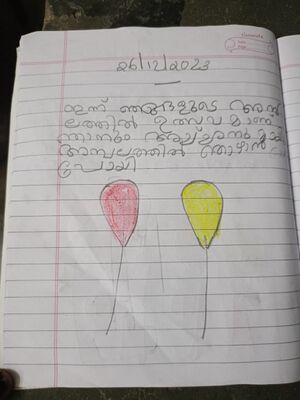 26/12/2023
ഇന്ന് ഞങ്ങളുടെ അമ്പ
ലത്തിൽ ഉത്സവമാണ്
ഞാനും അച്ഛനും
അമ്പലത്തിൽ തൊഴാൻ
പോയി